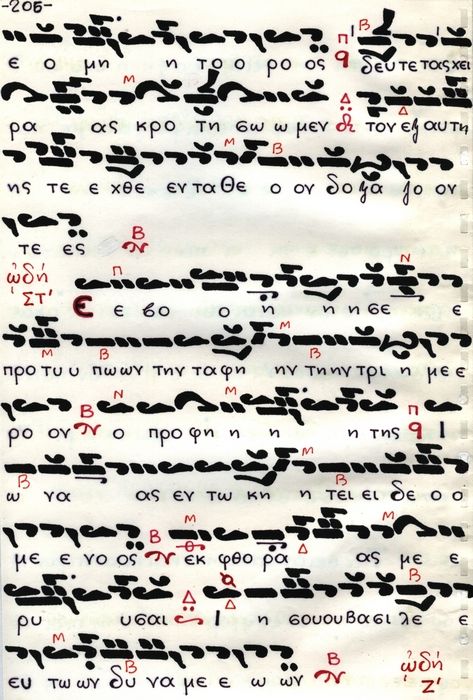 -206-
Π Β
ε ο μη η το ο ρο ος δευ τε τας χει
Μ Δ Δ
ρα ας κρο τη σω ω μεν τον εξ αυ τη
Μ Β
ης τε ε χθε εν τα Θε ο ον δο ξα ζο ον
τε ες Β
ᾠδή ΣΤ'
Π Ν
Ε ε βο ο η η η σε ε
Μ Β Μ Β
προ τυ υ πω ων την τα φη ην την τρι η με ε
Β Ν Μ Π
ρο ον ο προ φη η η η της Ι
Β Μ Β
ω να ας εν τω κη η τει ει δε ο ο
Β Μ Δ Μ
με ε νο ος εκ φθο ρα ας με ε
Δ Δ
ρυ υσαι Ι η σου ου βα σι λε ε
Μ Β Β
ευ τω ων δυ να με ε ω ων
ᾠδή Ζ'